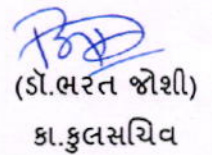 (ડૉ.ભરત જોશી)
કા.કુલસચિવ